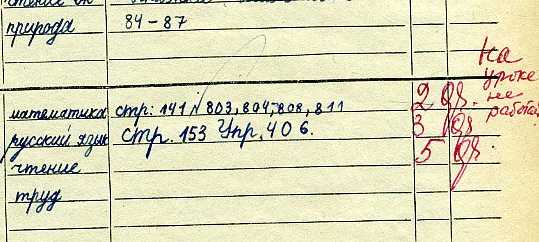 чтение
природа 84-87
На уроке не работал
математика стр. 141 № 803, 804, 808, 811 2
русский язык стр. 153 Упр. 406. 3
чтение 5
труд